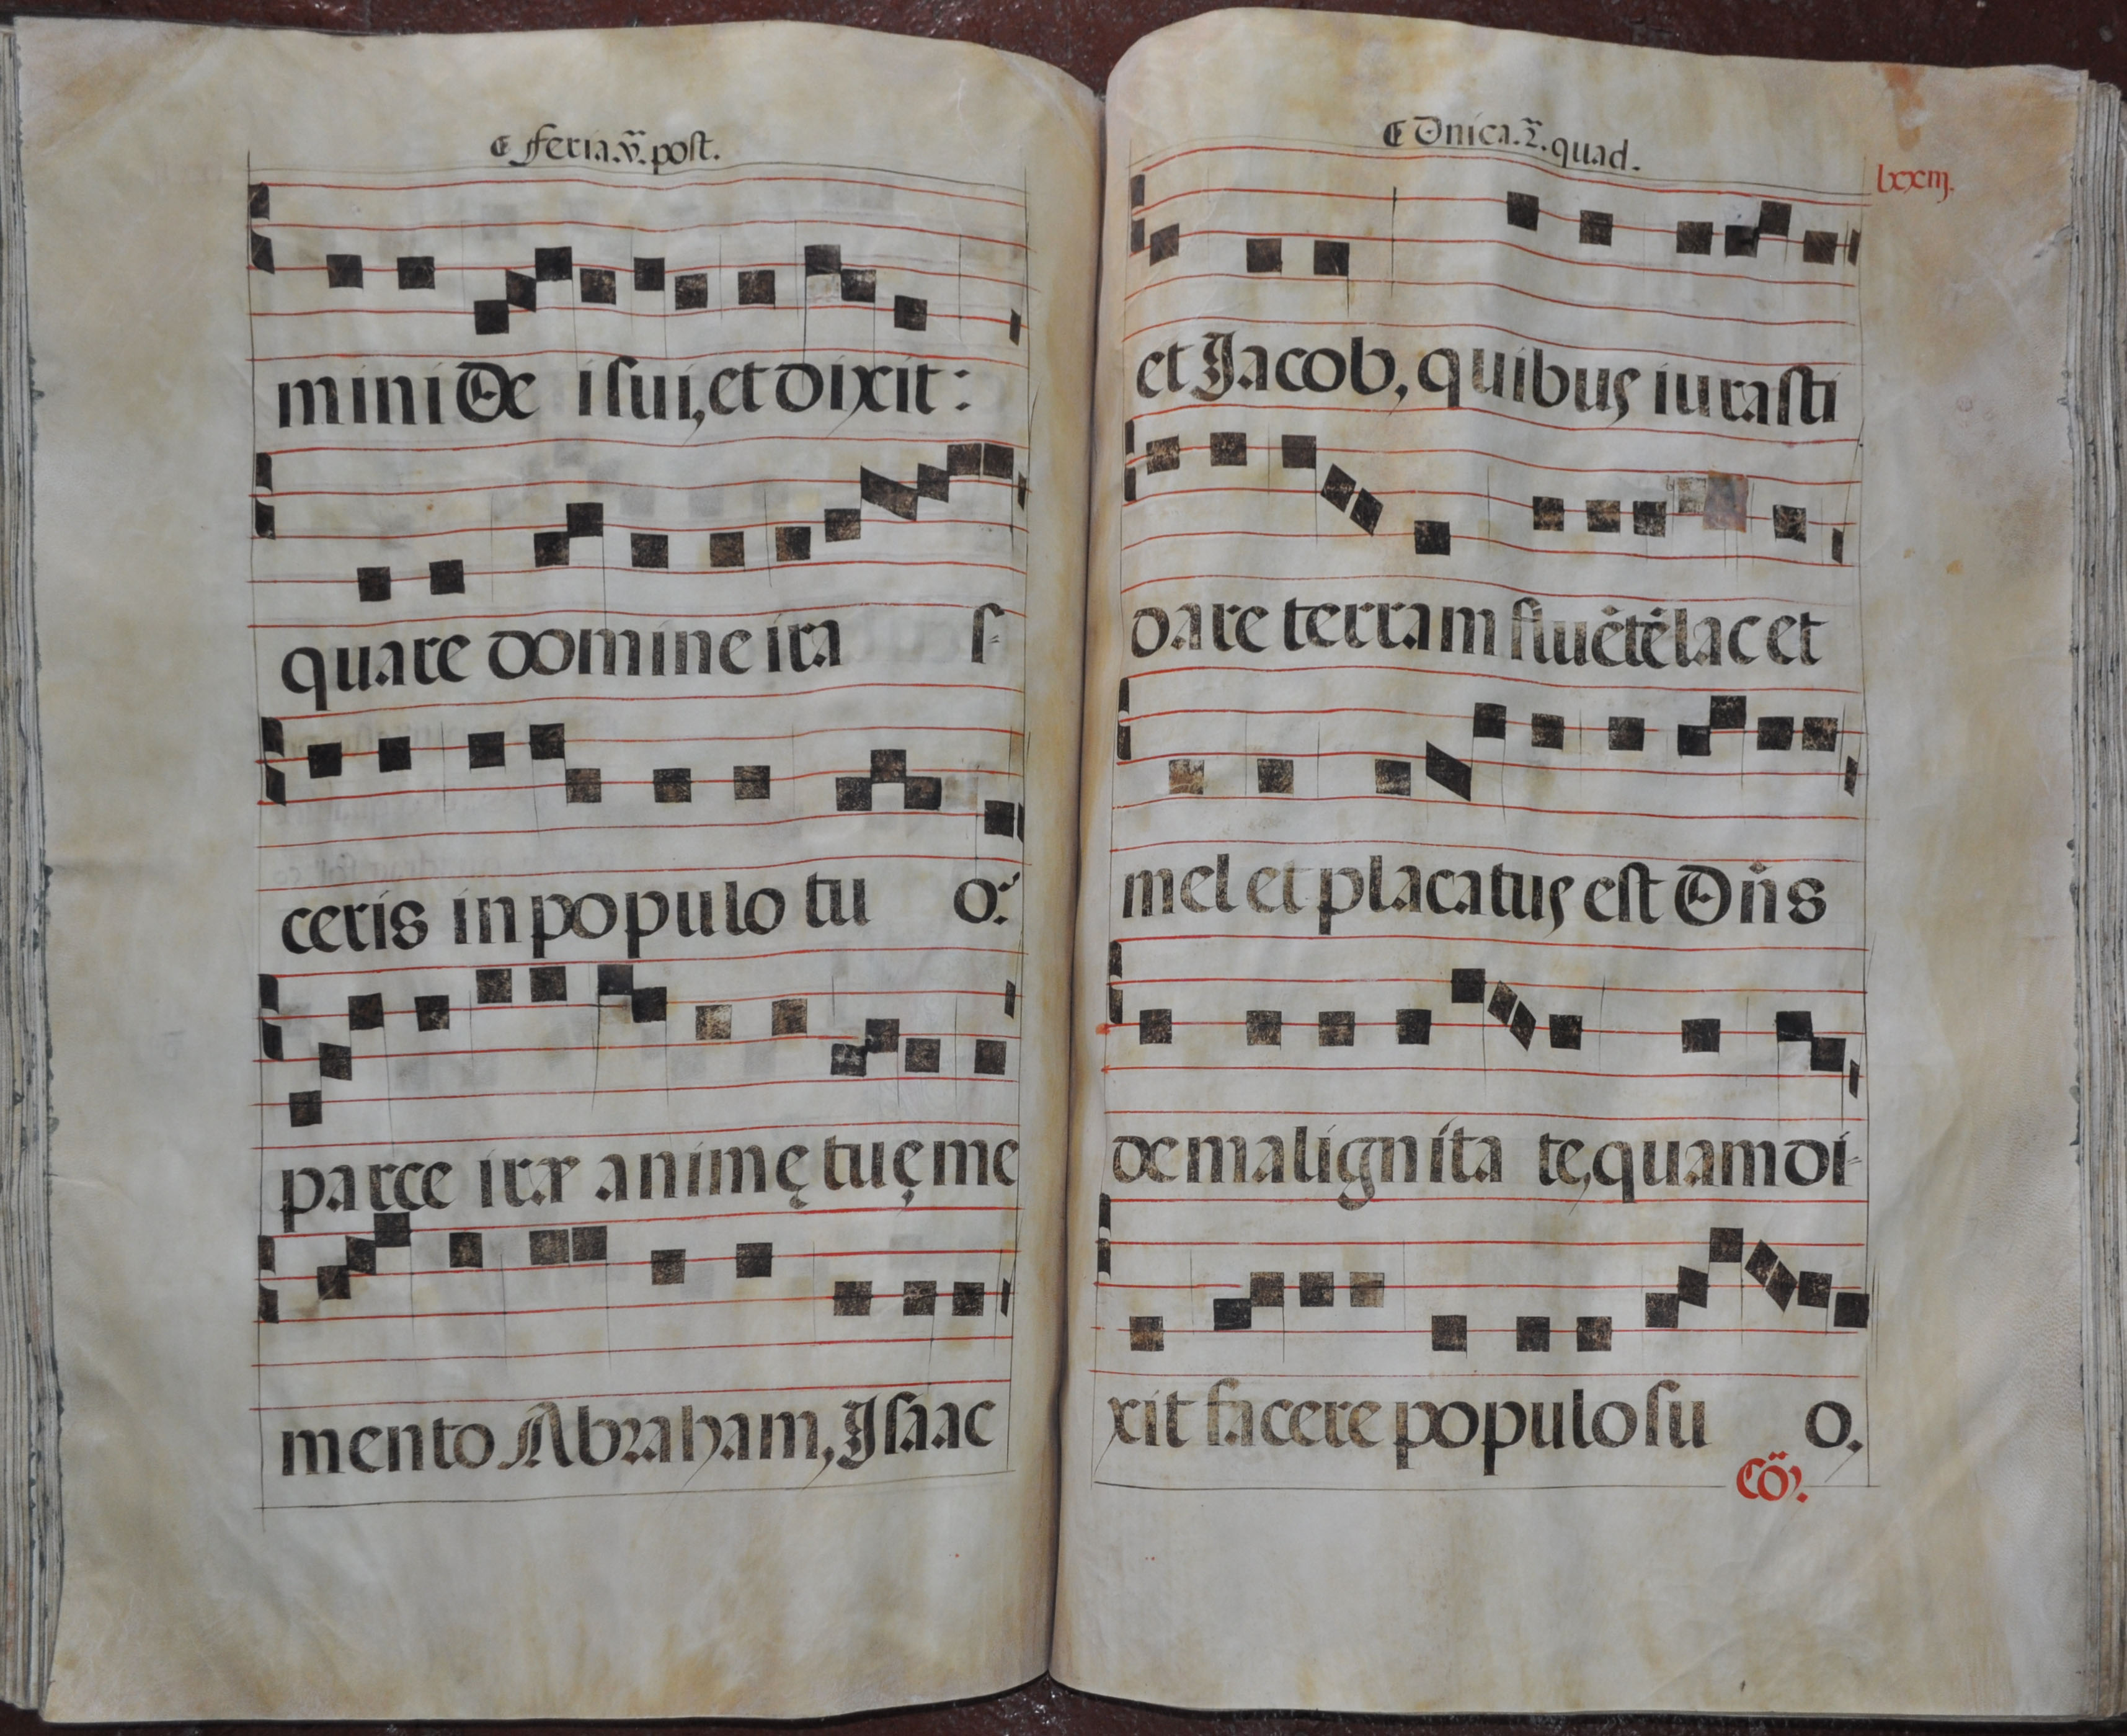 feria.v. post.
mini De i sui, et dixit:
quare domine ira s-
ceris in populo tuo:
parce iræ animę tuę me
mento Abraham, Isaac
Dnica. 2. quad.
lxxiij.
et Jacob, quibus iurasti
dare terram fluētē lac et
mel et placatus est Dñs
de malignita te, quam di-
xit facere populo suo.
Cō.